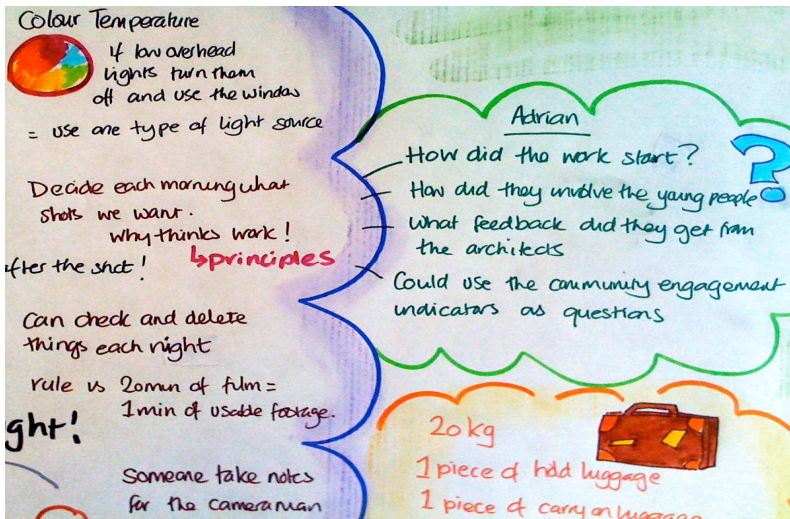 Colour Temperature
if low overhead
lights turn them
off and use the window
= use one type of light source
Decide each morning what
shots we want.
why thinks work!
↳principles
after the shot!
Can check and delete
things each night
rule is 20min of film =
1min of usable footage.
ght!
someone take notes
for the cameraman
Adrian
How did the work start?
How did they involve the young people
?
What feedback did they get from
the architects
Could use the community engagement
indicators as questions
20kg
1 piece of hold luggage
1 piece of carry on luggage